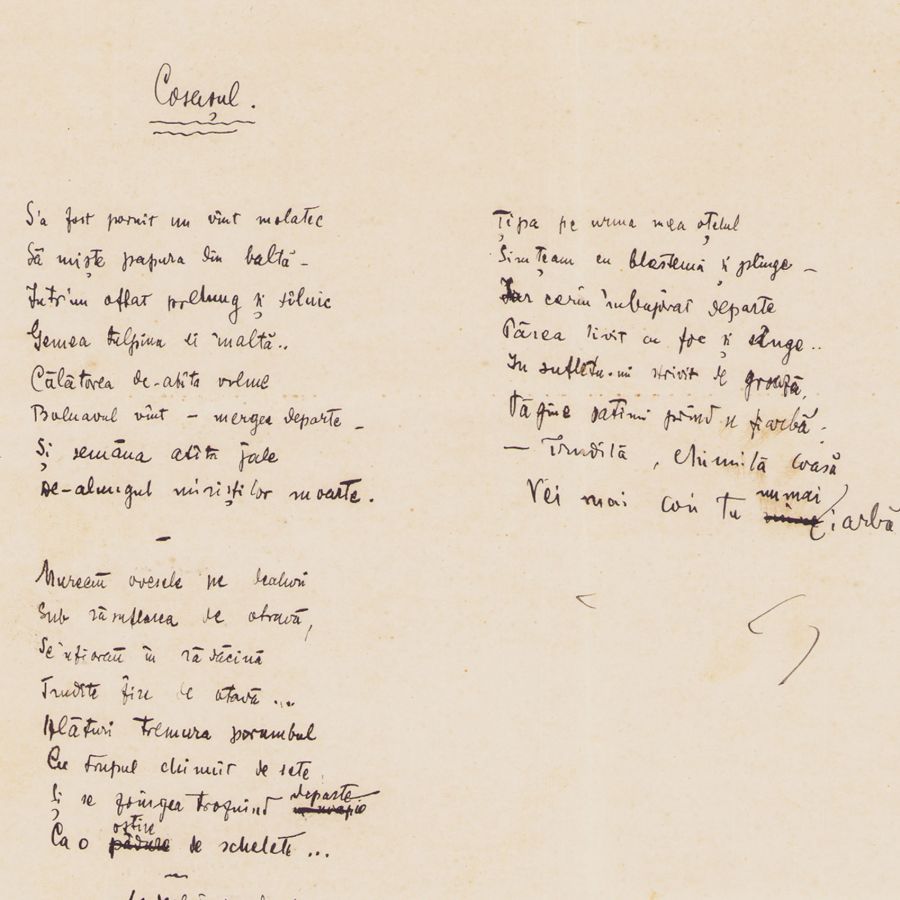 Cosașul.
S'a fost pornit un vînt molatec
Să miște papura din baltă –
Într'un oftat prelung și silnic
Gemea tulpina ei 'naltă..
Călătorea de-atîta vreme
Bolnavul vînt – mergea departe –
Și semăna atîta jale
De-alungul miriștilor moarte.
–
Mureau ovesele pe dealuri
Sub răsuflarea de otravă,
Se'nfiorau în rădăcină
Trudite fire de otavă ...
Alături tremura porumbul
Cu trupul chinuit de sete,
Și se frîngea trosnind departe
Ca o oștire de schelete ...
Țipa pe urma mea oțelul
Simțeam cu blastemă și plînge –
Iar cerul 'mbujorat departe
Părea stivit cu foc și sînge..
În sufletu-mi strivit de groază,
Pagîne patimi prind să fiarbă.
– Trudită, chinuită coasă
Vei mai cosi tu numai iarbă